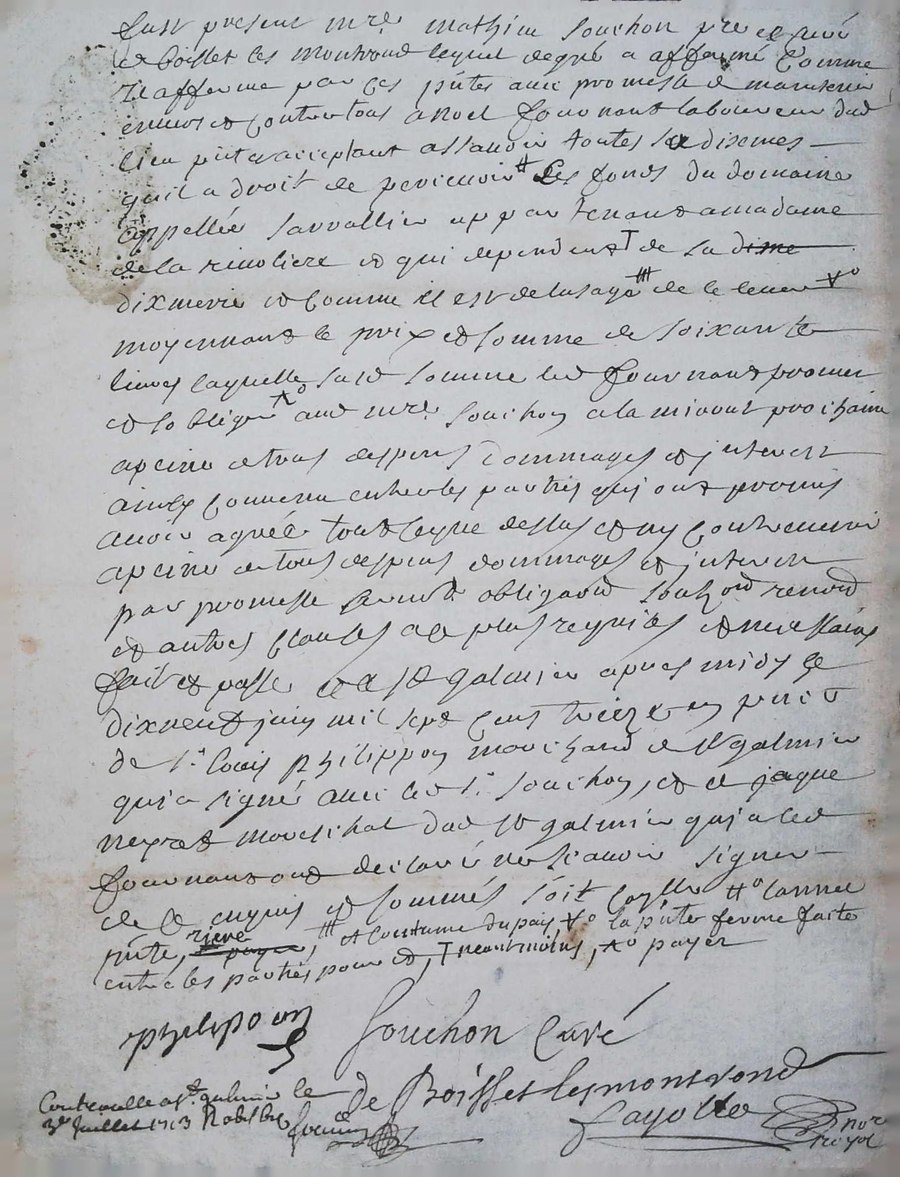 fust present mre mathieu Souchon pre et curé
de boisset les montrond lequel degré a affermé comme
il afferme par ces pntes avec promesse de maintenir
envers et contre tous a noel fournand laboureur dud
lieu pnt et acceptant assavoir toutes les dixmes
quil a droit de percevoir # les fonds du domaine
appellée Lavallier appartenant a madame
de la rivoliere et qui dependent T de sa dime
dixmerie et comme il est de lusage ttt de le lever
moyennant le prix et somme de soixante
livres laquelle susd somme led fournand promet
et soblige aud mre Souchon a la miaout prochaine
a peine de tous despens dommages et interest
ainsy convenu entre les parties qui ont promis
avoir agréé tout ce que dessus et ny contrevenir
a peine de tous despens dommages et interest
par promesse serment obligaon renon
et autres clauses a ce plus requises et necessaires
fait et passé a St galmier apres midy le
dixneuf juin mil sept cens treize en pnce
de sr Louis philippon marchand de St galmier
qui a signé avec led sr Souchon, et de jaque
neyret mareschal dud St galmier qui a led
fournand ont declaré ne scavoir signer
de ce enquis et sommés soit #o lannee
pnte, rieve, ttt et coustume du pais, la pnte ferme faite
entre les parties pour et, T neantmoins, payer
philipoon
Souchon Curé
de Boisset les montrond
Controulle a St galmier le
3e Juillet 1713
fayolle nore
royal